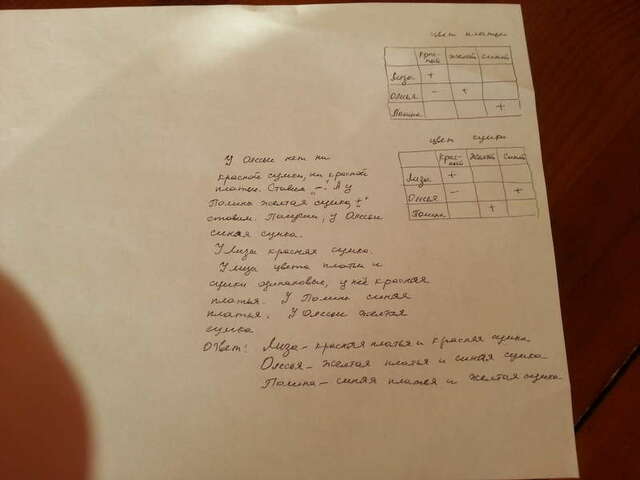 цвет платья
Крас-ный Желтый Синий
Лиза +
Олеся - +
Полина +
цвет сумки
Крас-ный Желтый Синий
Лиза +
Олеся - +
Полина +
У Олеси нет ни
красной сумки, ни красной
платья. Ставим „-". А у
Полины желтая сумка „+"
ставим. Получим, у Олеси
синяя сумка.
У Лиза красная сумка.
У Лиза цвета платья и
сумки одинаковые, у неё красная
платья. У Полины синяя
платья, У Олеси желтая
сумка
Ответ: Лиза - красная платья и красная сумка
Олеся - желтая платья и синяя сумка
Полина - синяя платья и желтая сумка